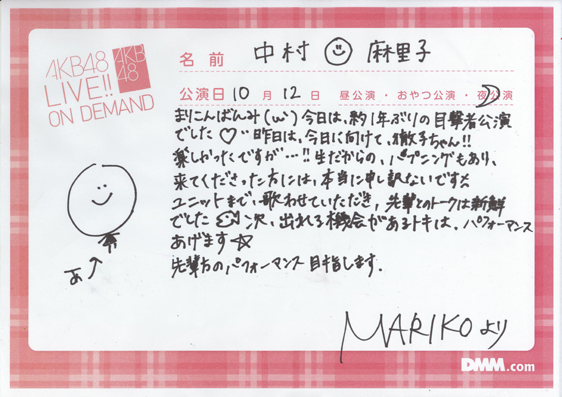 AKB48
LIVE!!
ON DEMAND
AKB
48
名前 中村 麻里子
公演日 10月 12日 昼公演・おやつ公演・夜公演
まりこんばんみ(ω) 今日は、約1年ぶりの目撃者公演
でした♡ 昨日は、今日に向けて、徹子ちゃん!!
楽しかったですが…!! 生だからの、ハプニングもあり、
来てくださった方には、本当に申し訳ないです
ユニットまで、歌わせていただき、先輩とのトークは新鮮
でした 次、出れる機会があるトキは、パフォーマンス
あげます☆
先輩方のパフォーマンス目指します.
MARIKOより
DMM.com